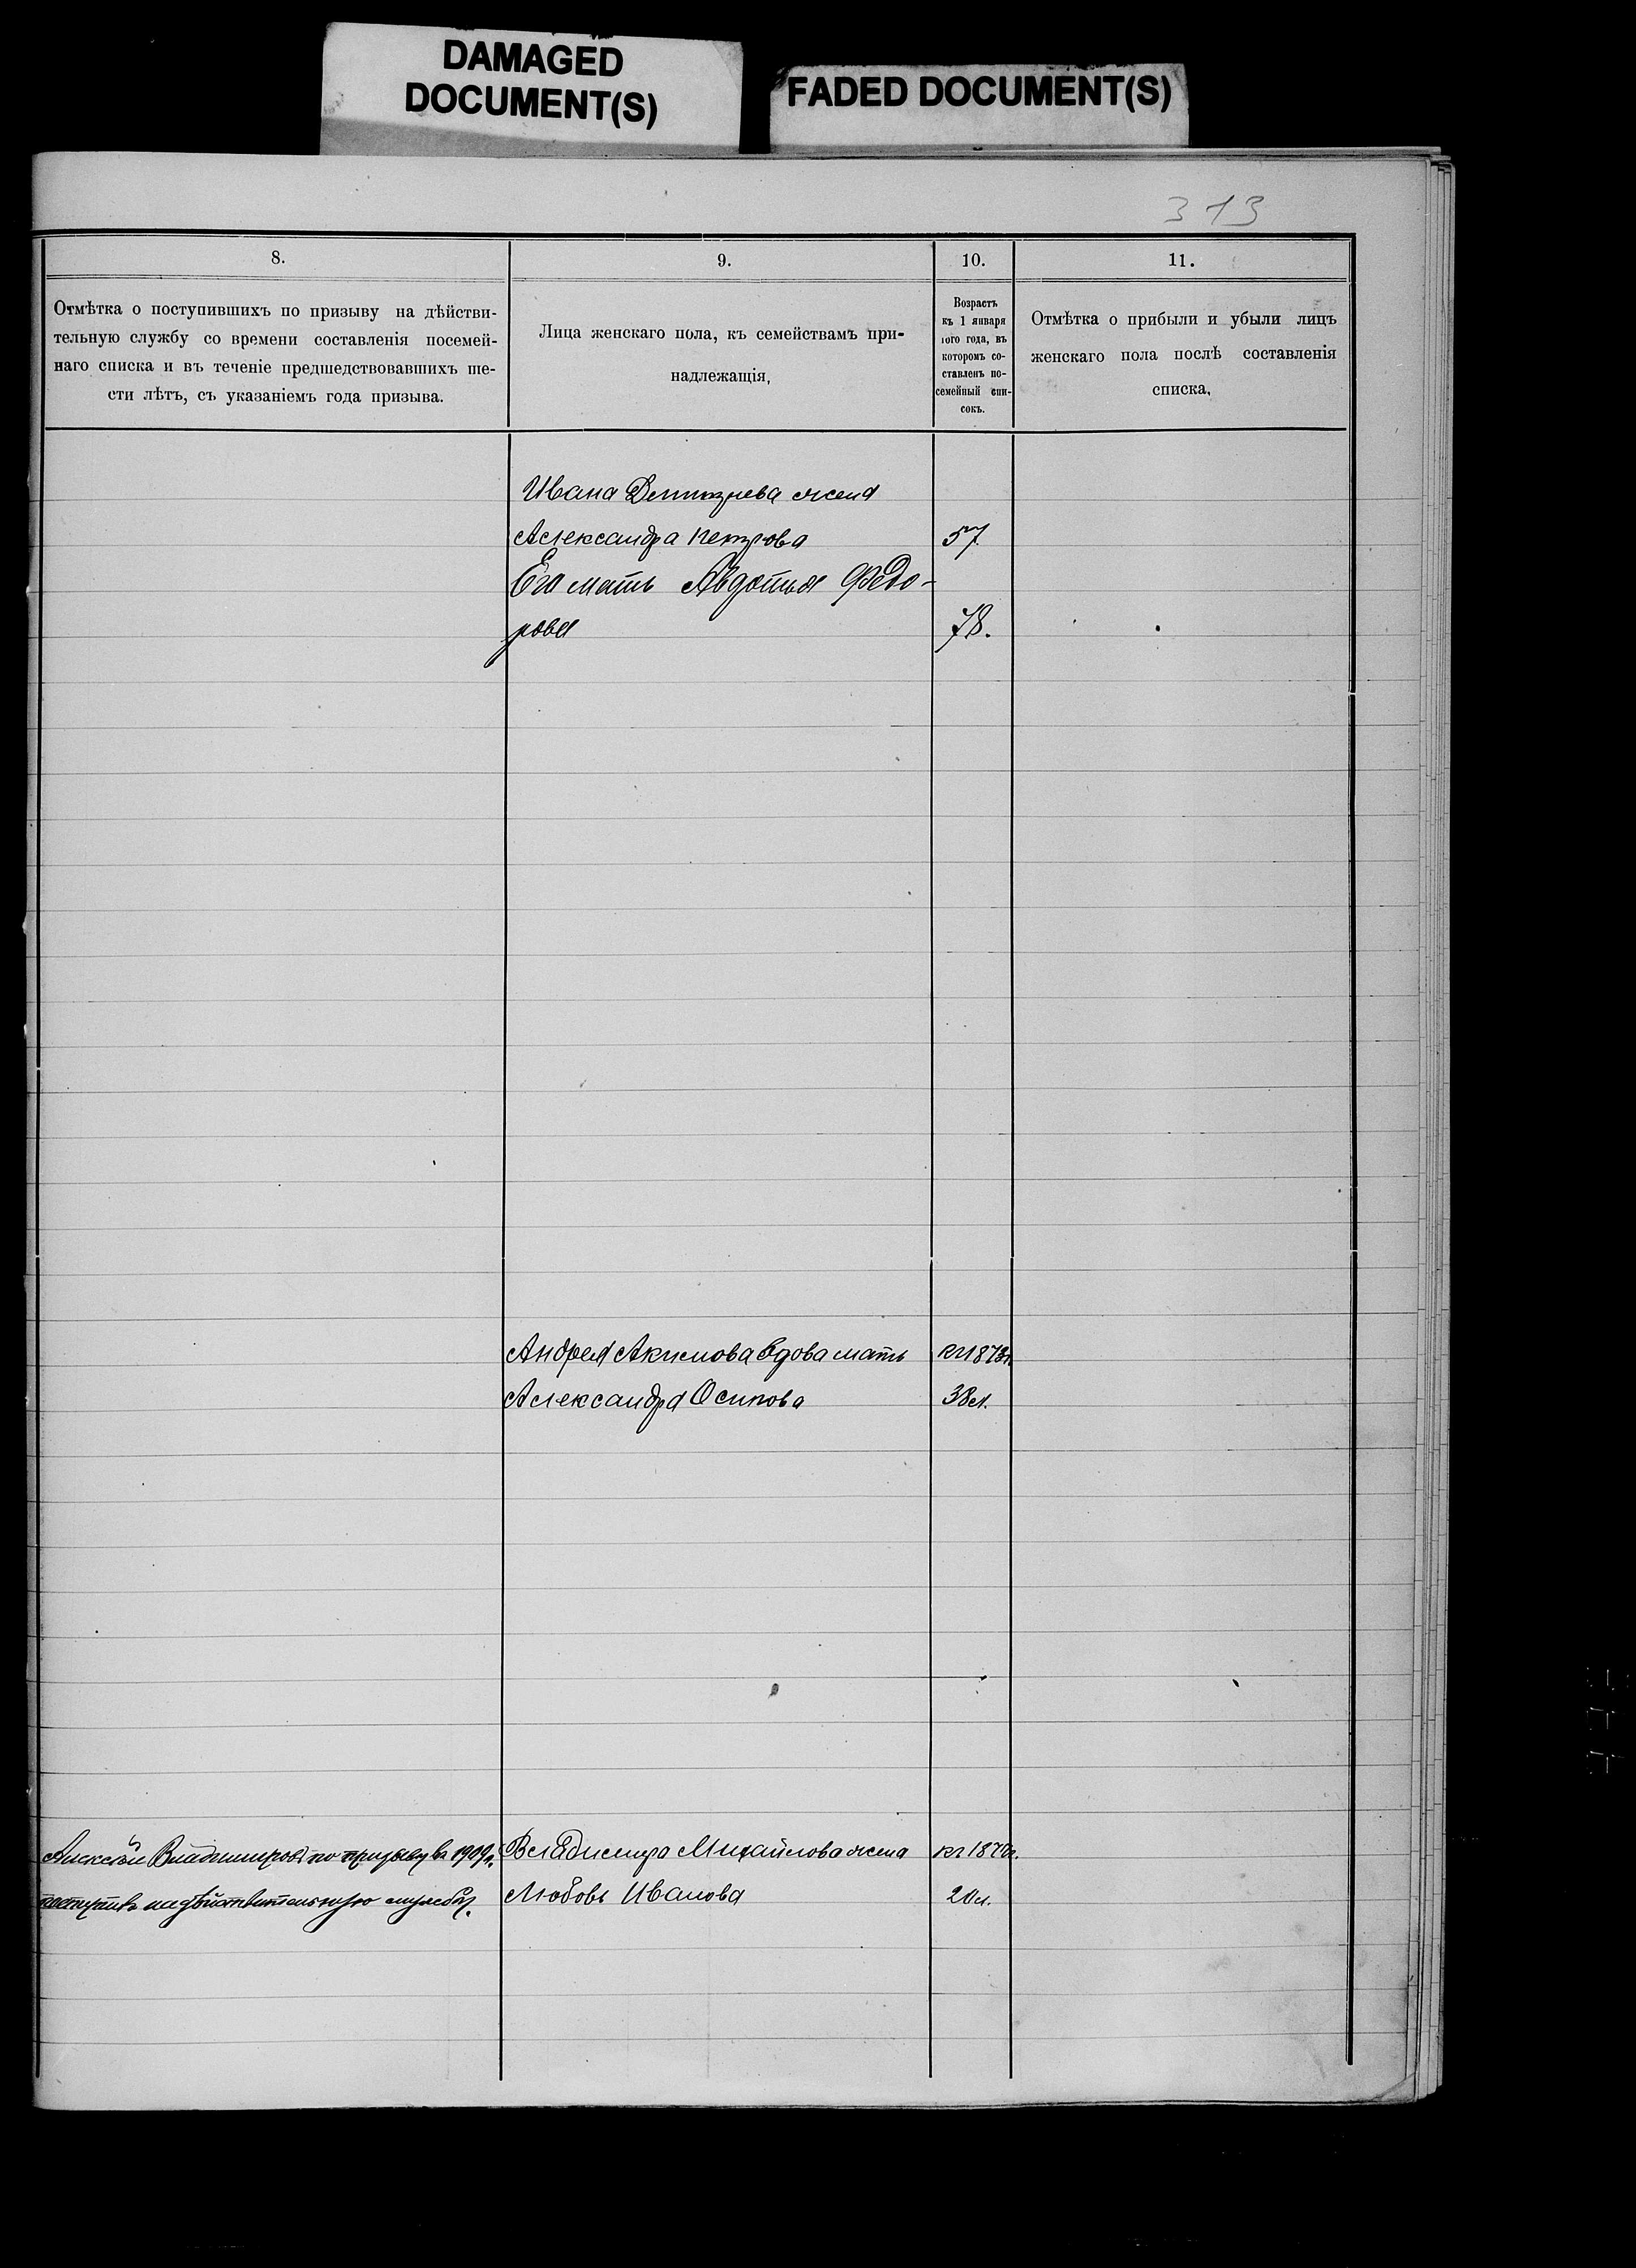 DAMAGED
DOCUMENT(S)
FADED DOCUMENT(S)
313
8.
9.
10.
11.
Отмѣтка о поступившихъ по призыву на дѣйстви-
тельную службу со времени составленія посемей-
наго списка и въ теченіе предшедствовавшихъ ше-
сти лѣтъ, съ указаніемъ года призыва.
Лица женскаго пола, къ семействамъ при-
надлежащія,
Возрастъ
къ 1 января
того года, въ
которомъ со-
ставленъ по-
семейный спи-
сокъ.
Отмѣтка о прибыли и убыли лицъ
женскаго пола послѣ составленія
списка,
Ивана жена
Александра Петрова 57
Его мать Авдотья Федо-
рова 78.
Андрея Акимова вдова мать кг 1873г.
Александра Осипова 38л.
Алексѣй Владимировъ по призыву в 1909г.
поступивъ на дѣйствительную службу.
Владимира Михайлова жена
Любовь Иванова 20л.